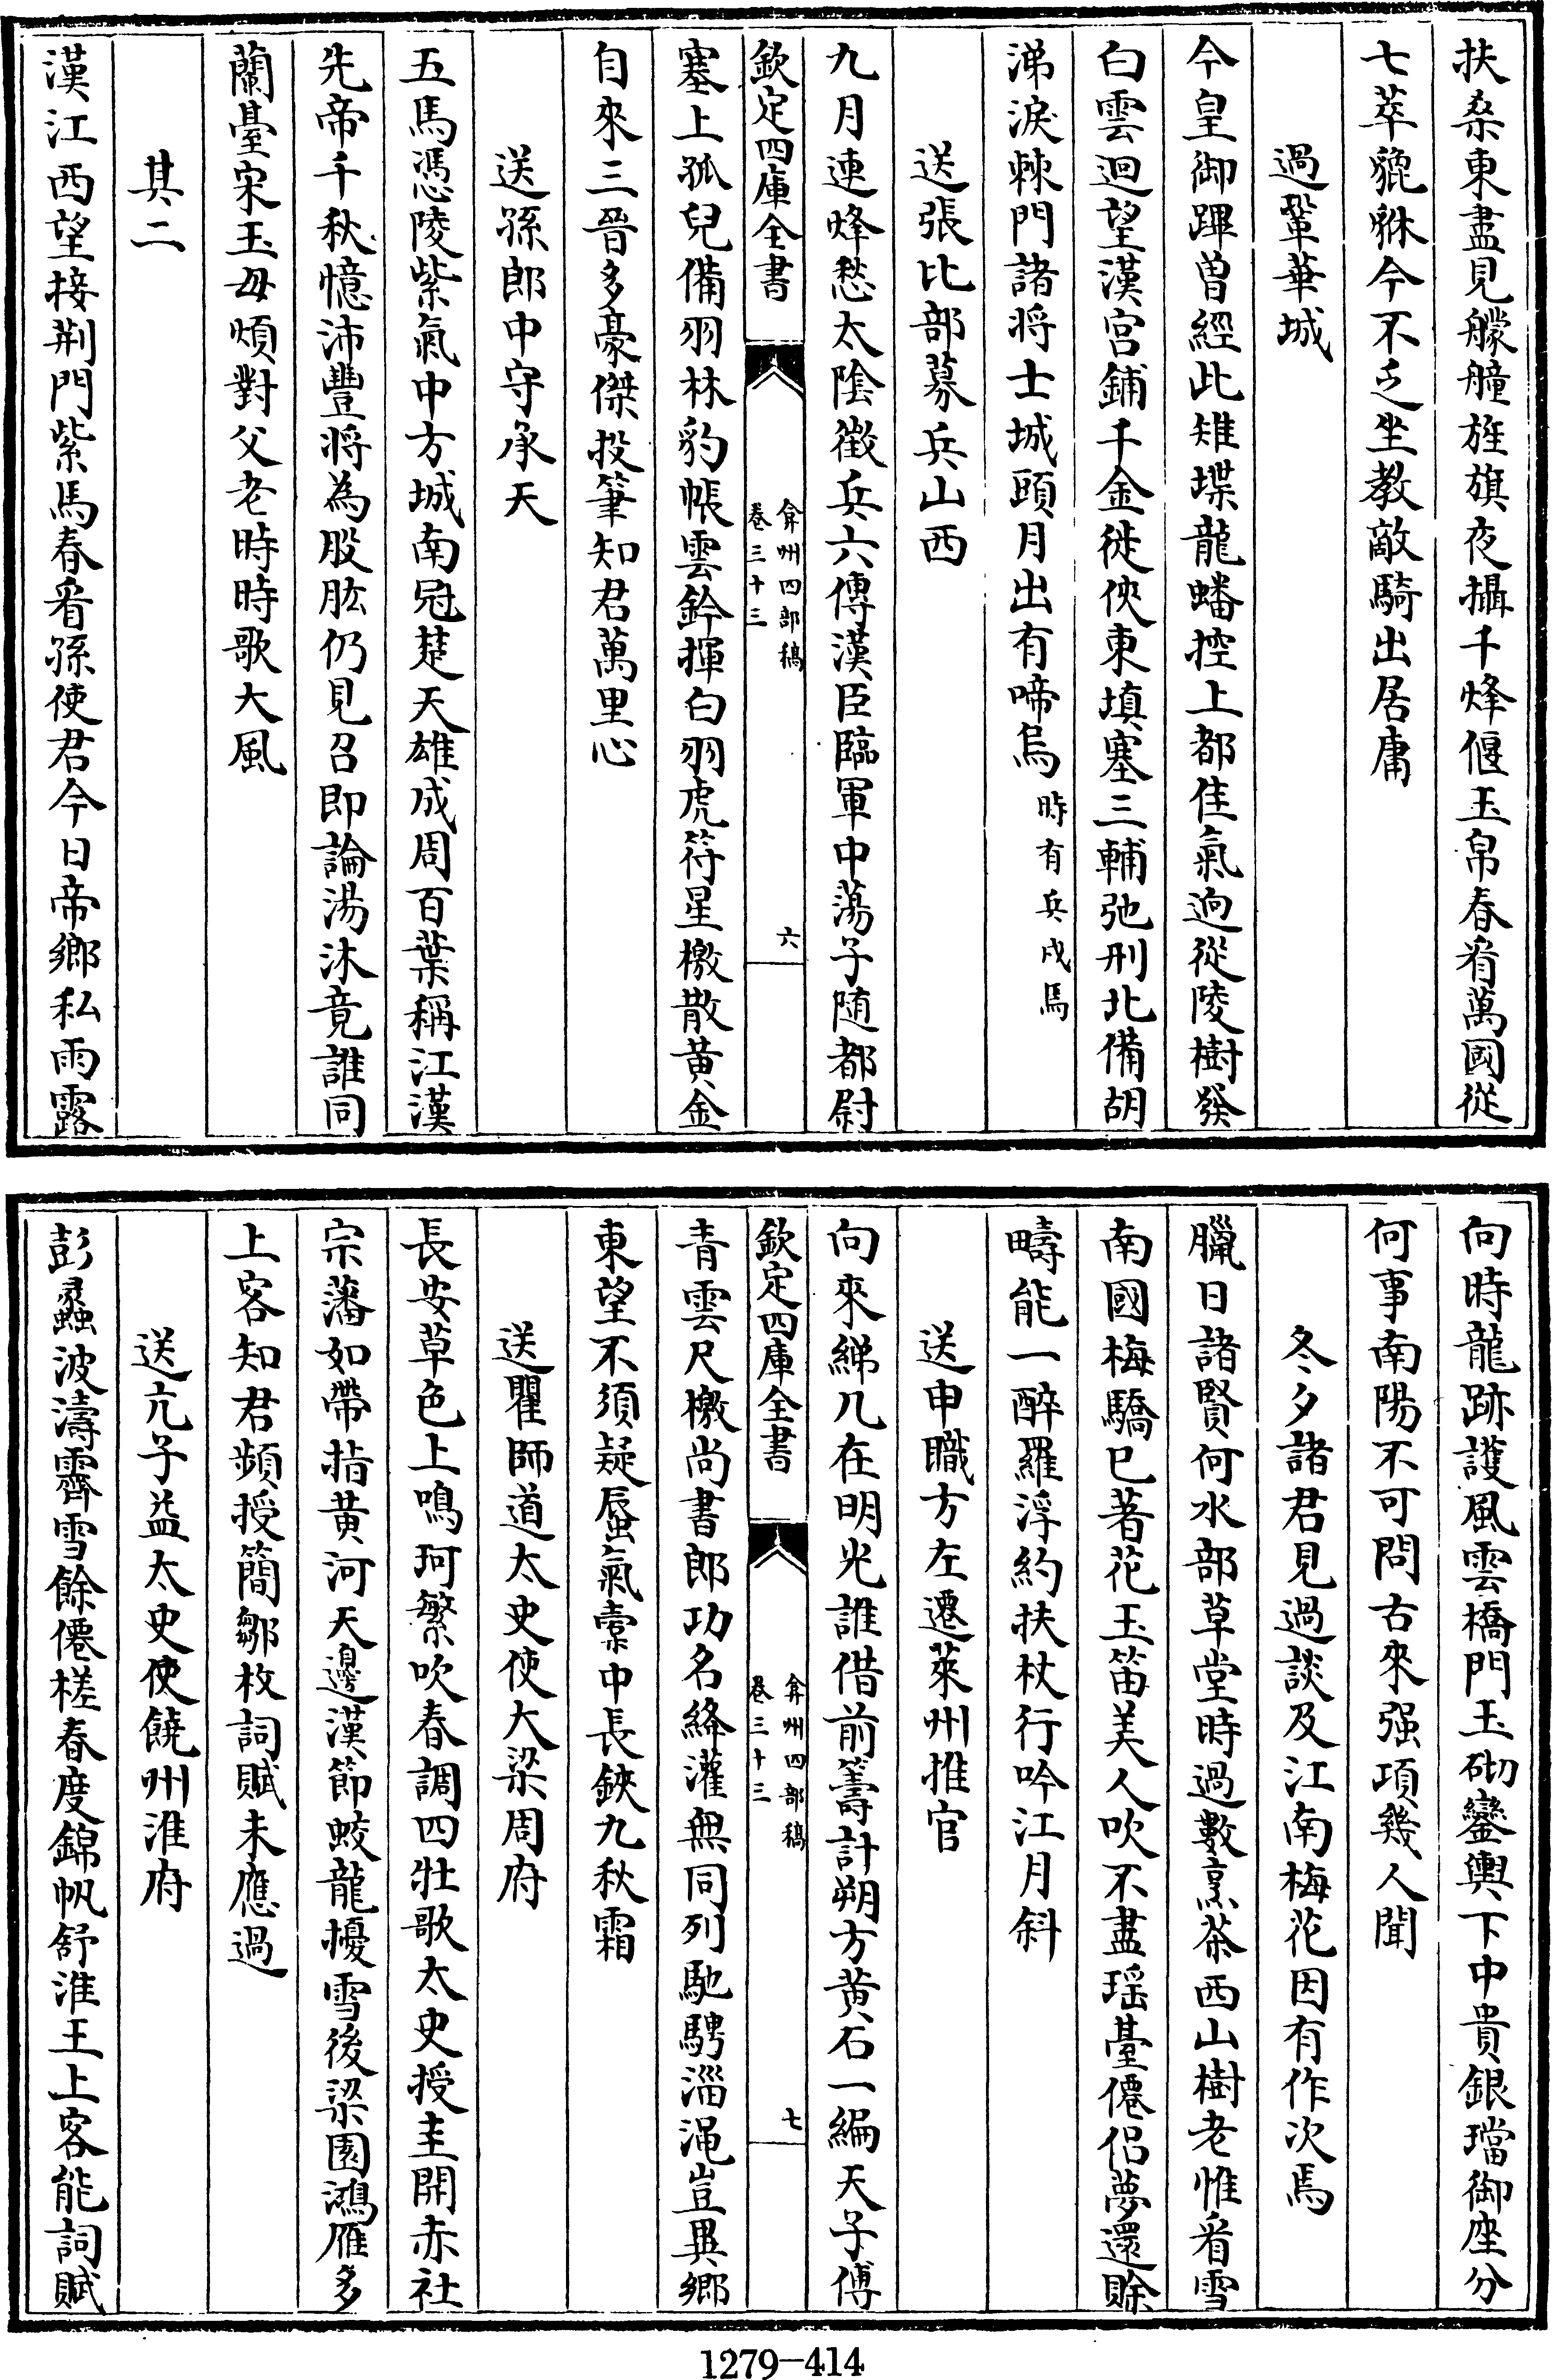 扶桑東盡見艨艟旌旗夜攝千烽偃玉帛春㸔萬國從
七萃貔貅今不乏坐教敵騎出居庸
過鞏華城
今皇御蹕曽經此雉堞龍蟠控上都佳氣逈從陵樹發
白雲迴望漢宫鋪千金徙俠東填塞三輔弛刑北備胡
涕淚棘門諸將士城頭月出有啼烏時有兵戍焉
送張比部募兵山西
九月連烽愁太陰徵兵六傳漢臣臨軍中蕩子随都尉
欽定四庫全書
弇州四部稿
卷三十三
六
塞上孤兒備羽林豹帳雲鈐揮白羽虎符星檄散黄金
自來三晉多豪傑投筆知君萬里心
送孫郎中守承天
五馬憑陵紫氣中方城南冠楚天雄成周百葉稱江漢
先帝千秋憶沛豐將為股肱仍見召即論湯沐竟誰同
蘭臺宋玉毋煩對父老時時歌大風
其二
漢江西望接荆門紫馬春㸔孫使君今日帝鄉私雨露
向時龍跡護風雲橋門玉砌鑾輿下中貴銀璫御座分
何事南陽不可問古來强項幾人聞
冬夕諸君見過談及江南梅花因有作次焉
臘日諸賢何水部草堂時過數烹茶西山樹老惟㸔雪
南國梅驕已著花玉笛美人吹不盡瑶臺僊侣夢還賒
疇能一醉羅浮約扶杖行吟江月斜
送申職方左遷萊州推官
向來綈几在明光誰借前籌計朔方黄石一編天子傅
欽定四庫全書
弇州四部稿
卷三十三
七
青雲尺檄尚書郎功名絳灌無同列馳騁淄渑豈異鄉
東望不須疑蜃氣橐中長鋏九秋霜
送瞿師道太史使大梁周府
長安草色上鳴珂繁吹春調四牡歌太史授圭開赤社
宗藩如帶指黄河天邊漢節蛟龍擾雪後梁園鴻雁多
上客知君頻授簡鄒枚詞賦未應過
送亢子益太史使饒州淮府
彭蠡波濤霽雪餘僊槎春度錦帆舒淮王上客能詞賦
1279-414